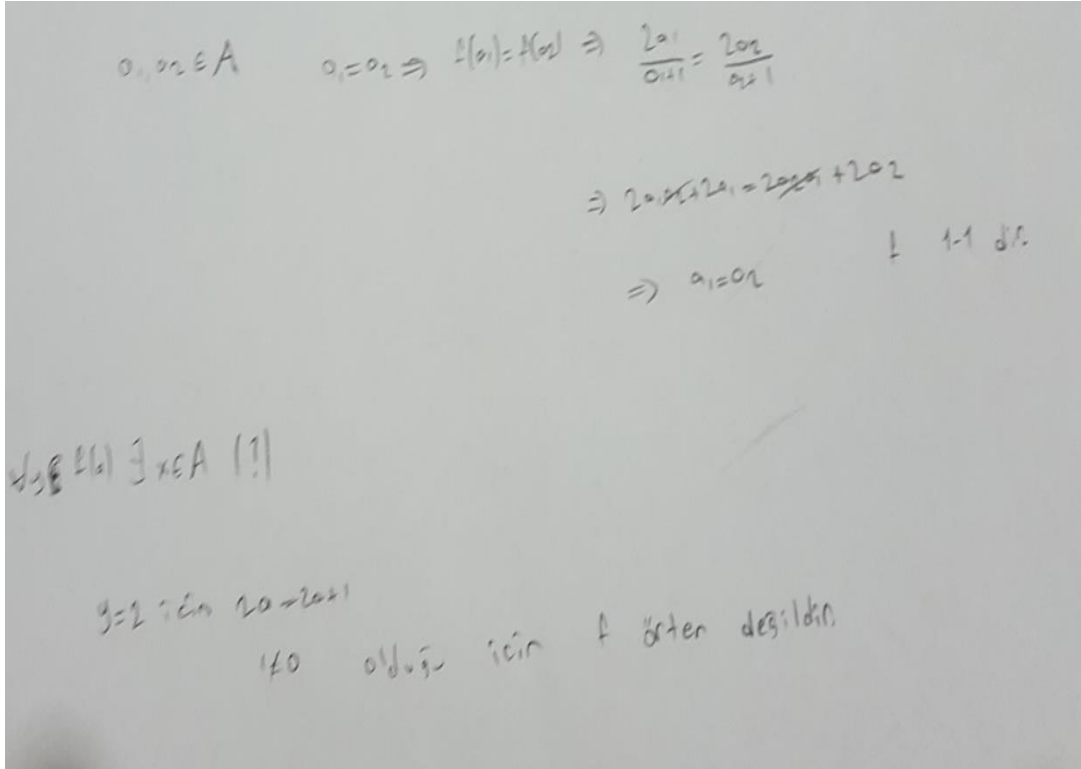 a₁, a₂ ∈ A a₁=a₂ ⇒ f(a₁)=f(a₂) ⇒ 2a₁/a₁+1 = 2a₂/a₂+1
⇒ 2a₁a₂+2a₁ = 2a₂a₁+2a₂
⇒ a₁=a₂ f 1-1 dir.
∃x∈A (!)
y=2 için 2a=2a+1
1≠0 olduğu için f örten değildir.